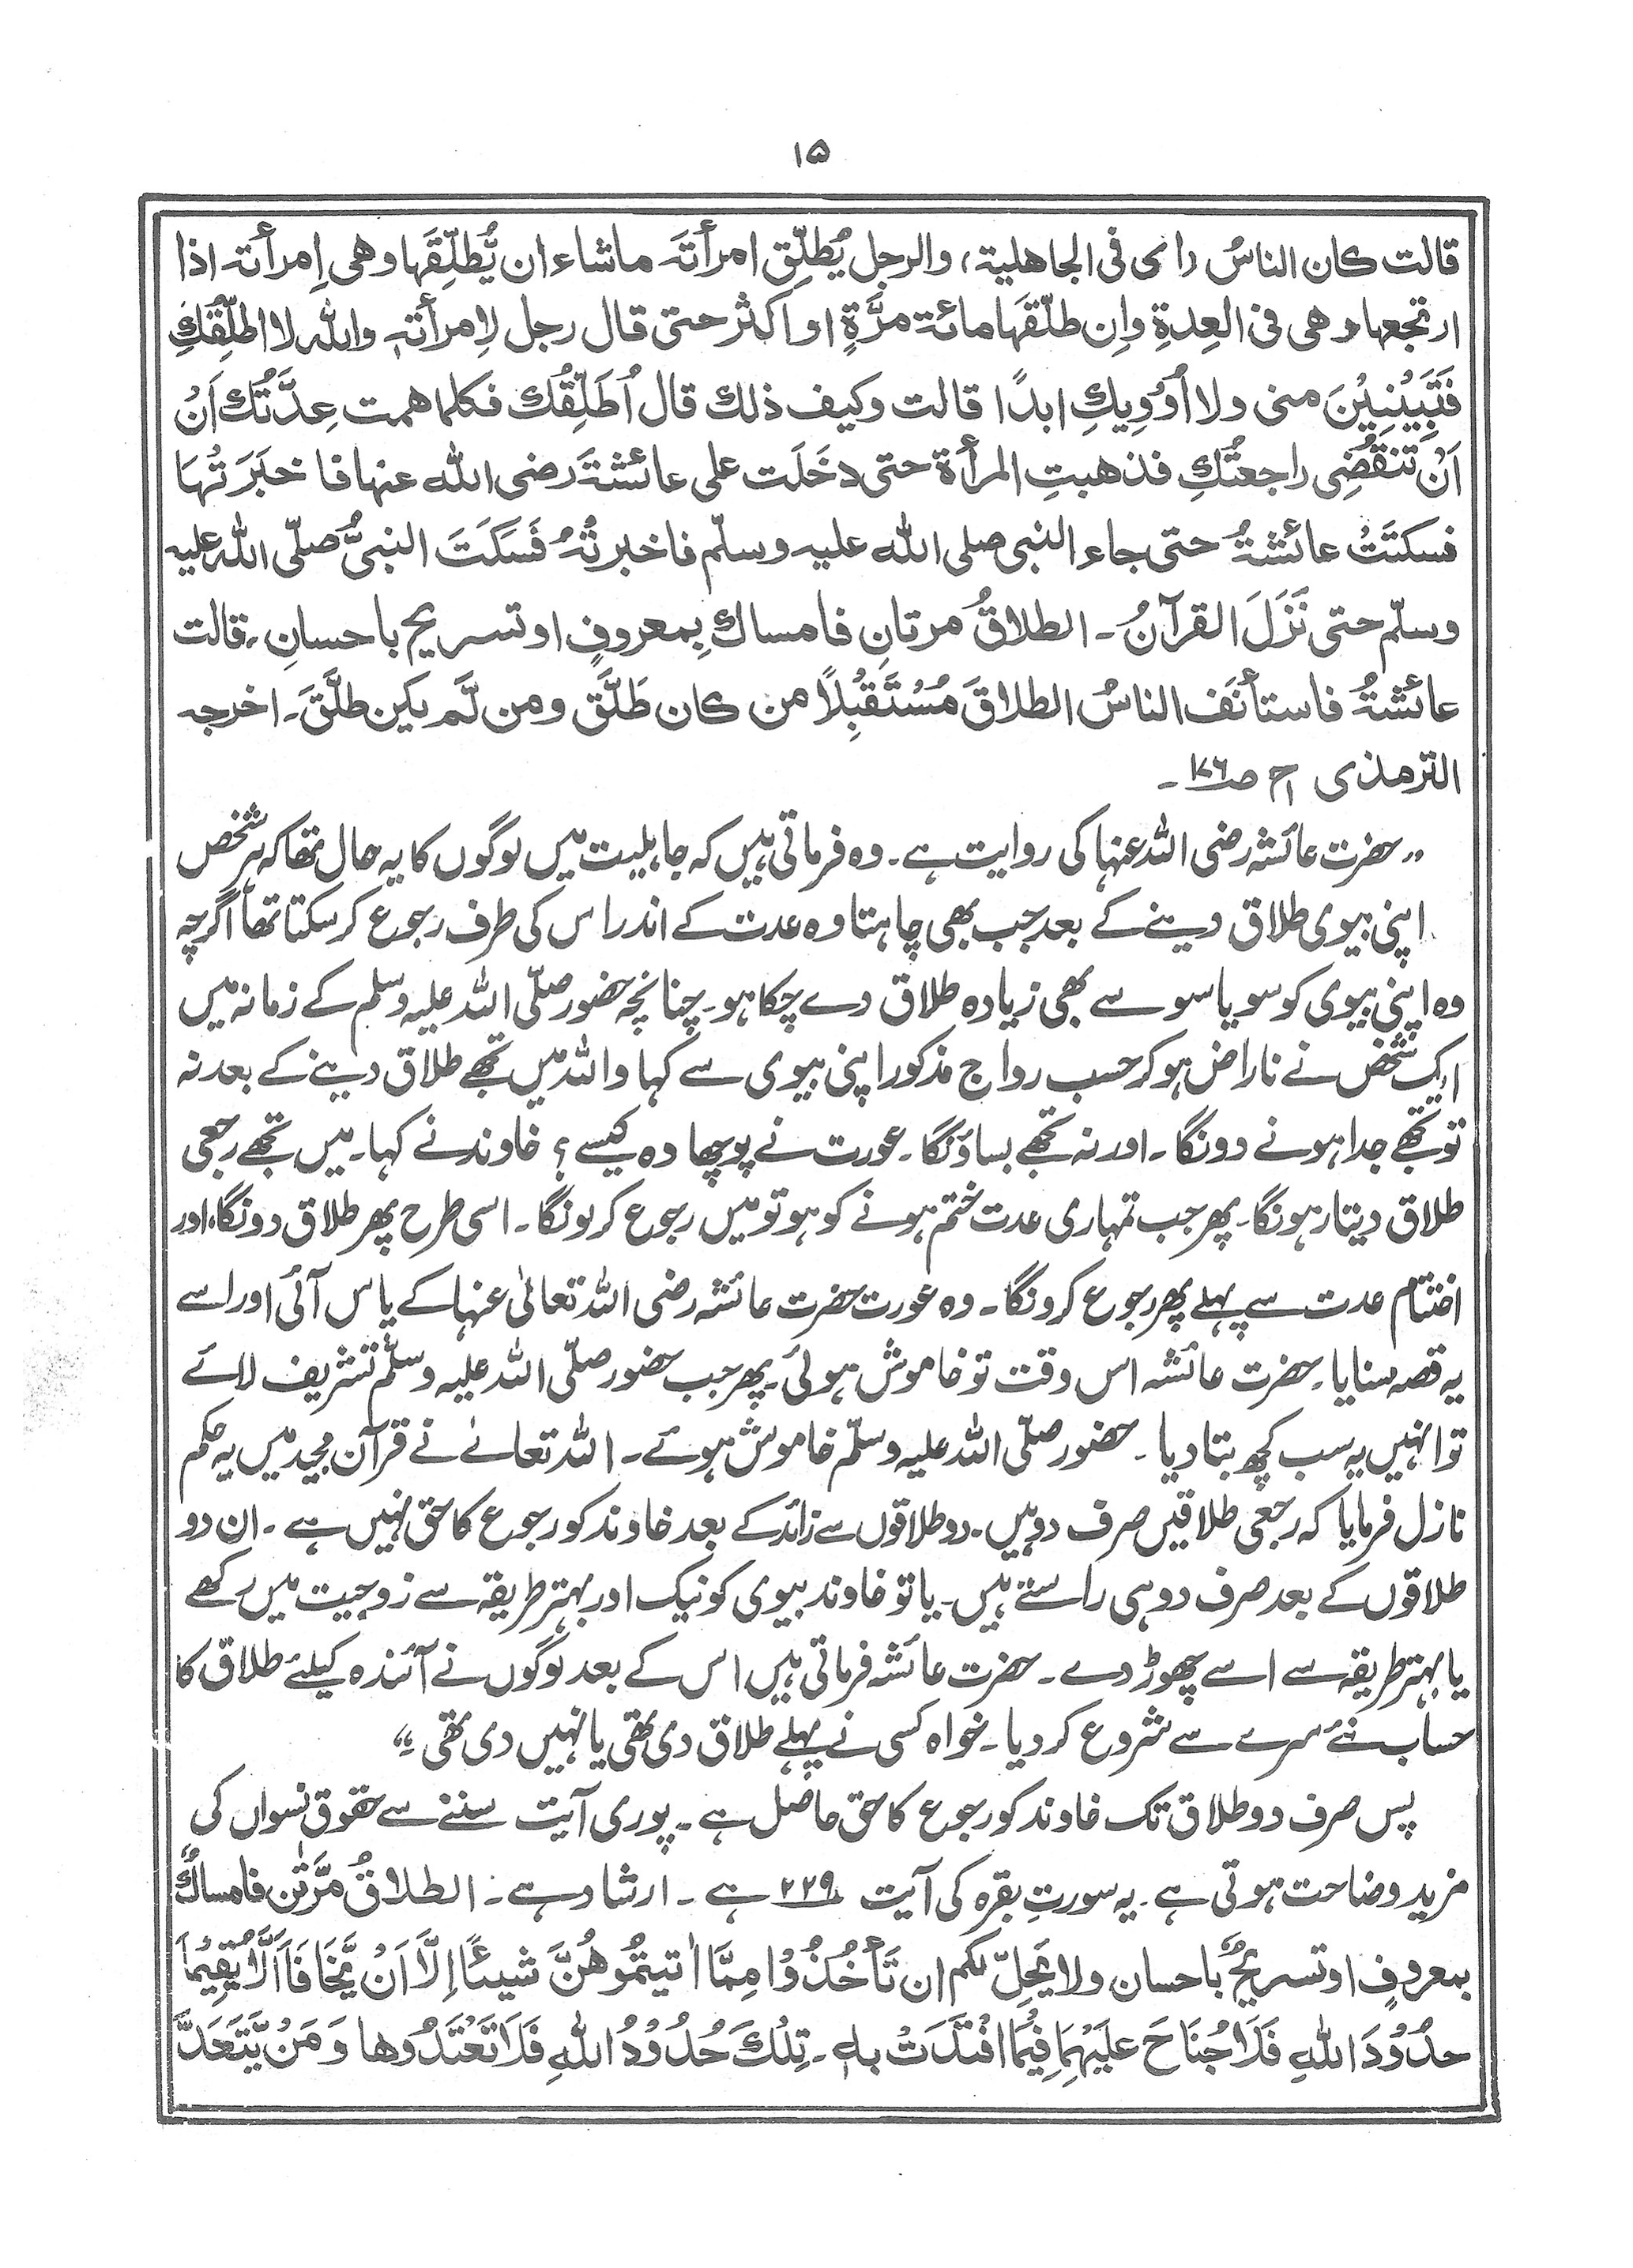 ۱۵
قالت كان الناسُ رای فی الجاهلية، والرجل يُطلّق امرأتہَ ماشاء ان يُّطلِّقَها وهی اِمرأتہ اذا
ارتجعها وهی فی العِدةِ واِن طلّقَها مائۃ مرَّةٍ او اكثر حتی قال رجل لِامرأتہٖ واللّٰه لا اطلِّقُكِ
فَتَبِيْنِيْنَ منی ولا اُوْوِيكِ ابدًا قالت وكيف ذلك قال اُطَلِّقُكِ فكلما همت عِدَّتُكِ اَنْ
اَنْ تَنقَضِی راجعتُكِ فذهبتِ المرأة حتی دخَلَت علی عائشۃَ رضی اللّٰه عنها فاخبَرَتْهَا
فسكتَتْ عائشۃُ حتی جاء النبی صلی اللّٰه عليه وسلّم فاخبرتْہُ فَسَكَتَ النبیُّ صلّی اللّٰه عليه
وسلّم حتی نَزَلَ القرآنُ۔ الطلاقُ مرتانِ فامساكِ بِمعروفٍ او تسريح باحسانِ، قالت
عائشۃُ فاستأنَف الناسُ الطلاقَ مُسْتَقْبِلًا من كان طَلَّقَ ومن لَّم يكن طلَّقَ۔ اخرجہ
الترمذی ج۱ ص۱۷۶۔
”حضرت عائشہ رضی اللہ عنہا کی روایت ہے۔ وہ فرماتی ہیں کہ جاہلیت میں لوگوں کا یہ حال تھا کہ ہر شخص
اپنی بیوی طلاق دینے کے بعد جب بھی چاہتا وہ عدت کے اندر اس کی طرف رجوع کر سکتا تھا اگرچہ
وہ اپنی بیوی کو سو یا سو سے بھی زیادہ طلاق دے چکا ہو۔ چنانچہ حضور صلّی اللہ علیہ وسلم کے زمانہ میں
ایک شخص نے ناراض ہو کر حسب رواج مذکور اپنی بیوی سے کہا واللہ میں تجھے طلاق دینے کے بعد نہ
تو تجھے جدا ہونے دونگا۔ اور نہ تجھے بساؤنگا۔ عورت نے پوچھا وہ کیسے؟ خاوند نے کہا۔ میں تجھے رجعی
طلاق دیتا رہونگا۔ پھر جب تمہاری عدت ختم ہونے کو ہو تو میں رجوع کر لونگا۔ اسی طرح پھر طلاق دونگا، اور
اختتام عدت سے پہلے پھر رجوع کرونگا۔ وہ عورت حضرت عائشہ رضی اللہ تعالیٰ عنہا کے پاس آئی اور اسے
یہ قصہ سنایا۔ حضرت عائشہ اس وقت تو خاموش ہوئی۔ پھر جب حضور صلّی اللہ علیہ وسلّم تشریف لائے
تو انہیں یہ سب کچھ بتا دیا۔ حضور صلّی اللہ علیہ وسلّم خاموش ہوئے۔ اللہ تعالےٰ نے قرآن مجید میں یہ حکم
نازل فرمایا کہ رجعی طلاقیں صرف دو ہیں۔ دو طلاقوں سے زائد کے بعد خاوند کو رجوع کا حق نہیں ہے۔ ان دو
طلاقوں کے بعد صرف دو ہی راستے ہیں۔ یا تو خاوند بیوی کو نیک اور بہتر طریقہ سے زوجیت میں رکھے
یا بہتر طریقہ سے اسے چھوڑ دے۔ حضرت عائشہ فرماتی ہیں اس کے بعد لوگوں نے آئندہ کیلئے طلاق کا
حساب نئے سرے سے شروع کر دیا۔ خواہ کسی نے پہلے طلاق دی تھی یا نہیں دی تھی۔“
پس صرف دو طلاق تک خاوند کو رجوع کا حق حاصل ہے۔ پوری آیت سننے سے حقوق نسواں کی
مزید وضاحت ہوتی ہے۔ یہ سورتِ بقرہ کی آیت ۲۲۹ ہے۔ ارشاد ہے۔ الطلاقُ مَرَّتٰن فامساكٌ
بمعروفٍ او تسريحٌ باحسان ولا يَحِلّ لكم ان تَأخُذُوْا مِمَّا اٰتيتمُوهُنَّ شيئًا اِلَّا اَنْ يَّخَافَا اَلَّا يُقِيْمَا
حدُوْدَ اللّٰهِ فَلَا جُنَاحَ عليَهِمَا فِيْمَا افْتَدَتْ بہٖ۔ تِلْكَ حُدُوْدُ اللّٰهِ فَلَا تَعْتَدُوها وَمَنْ يَّتَعَدَّ